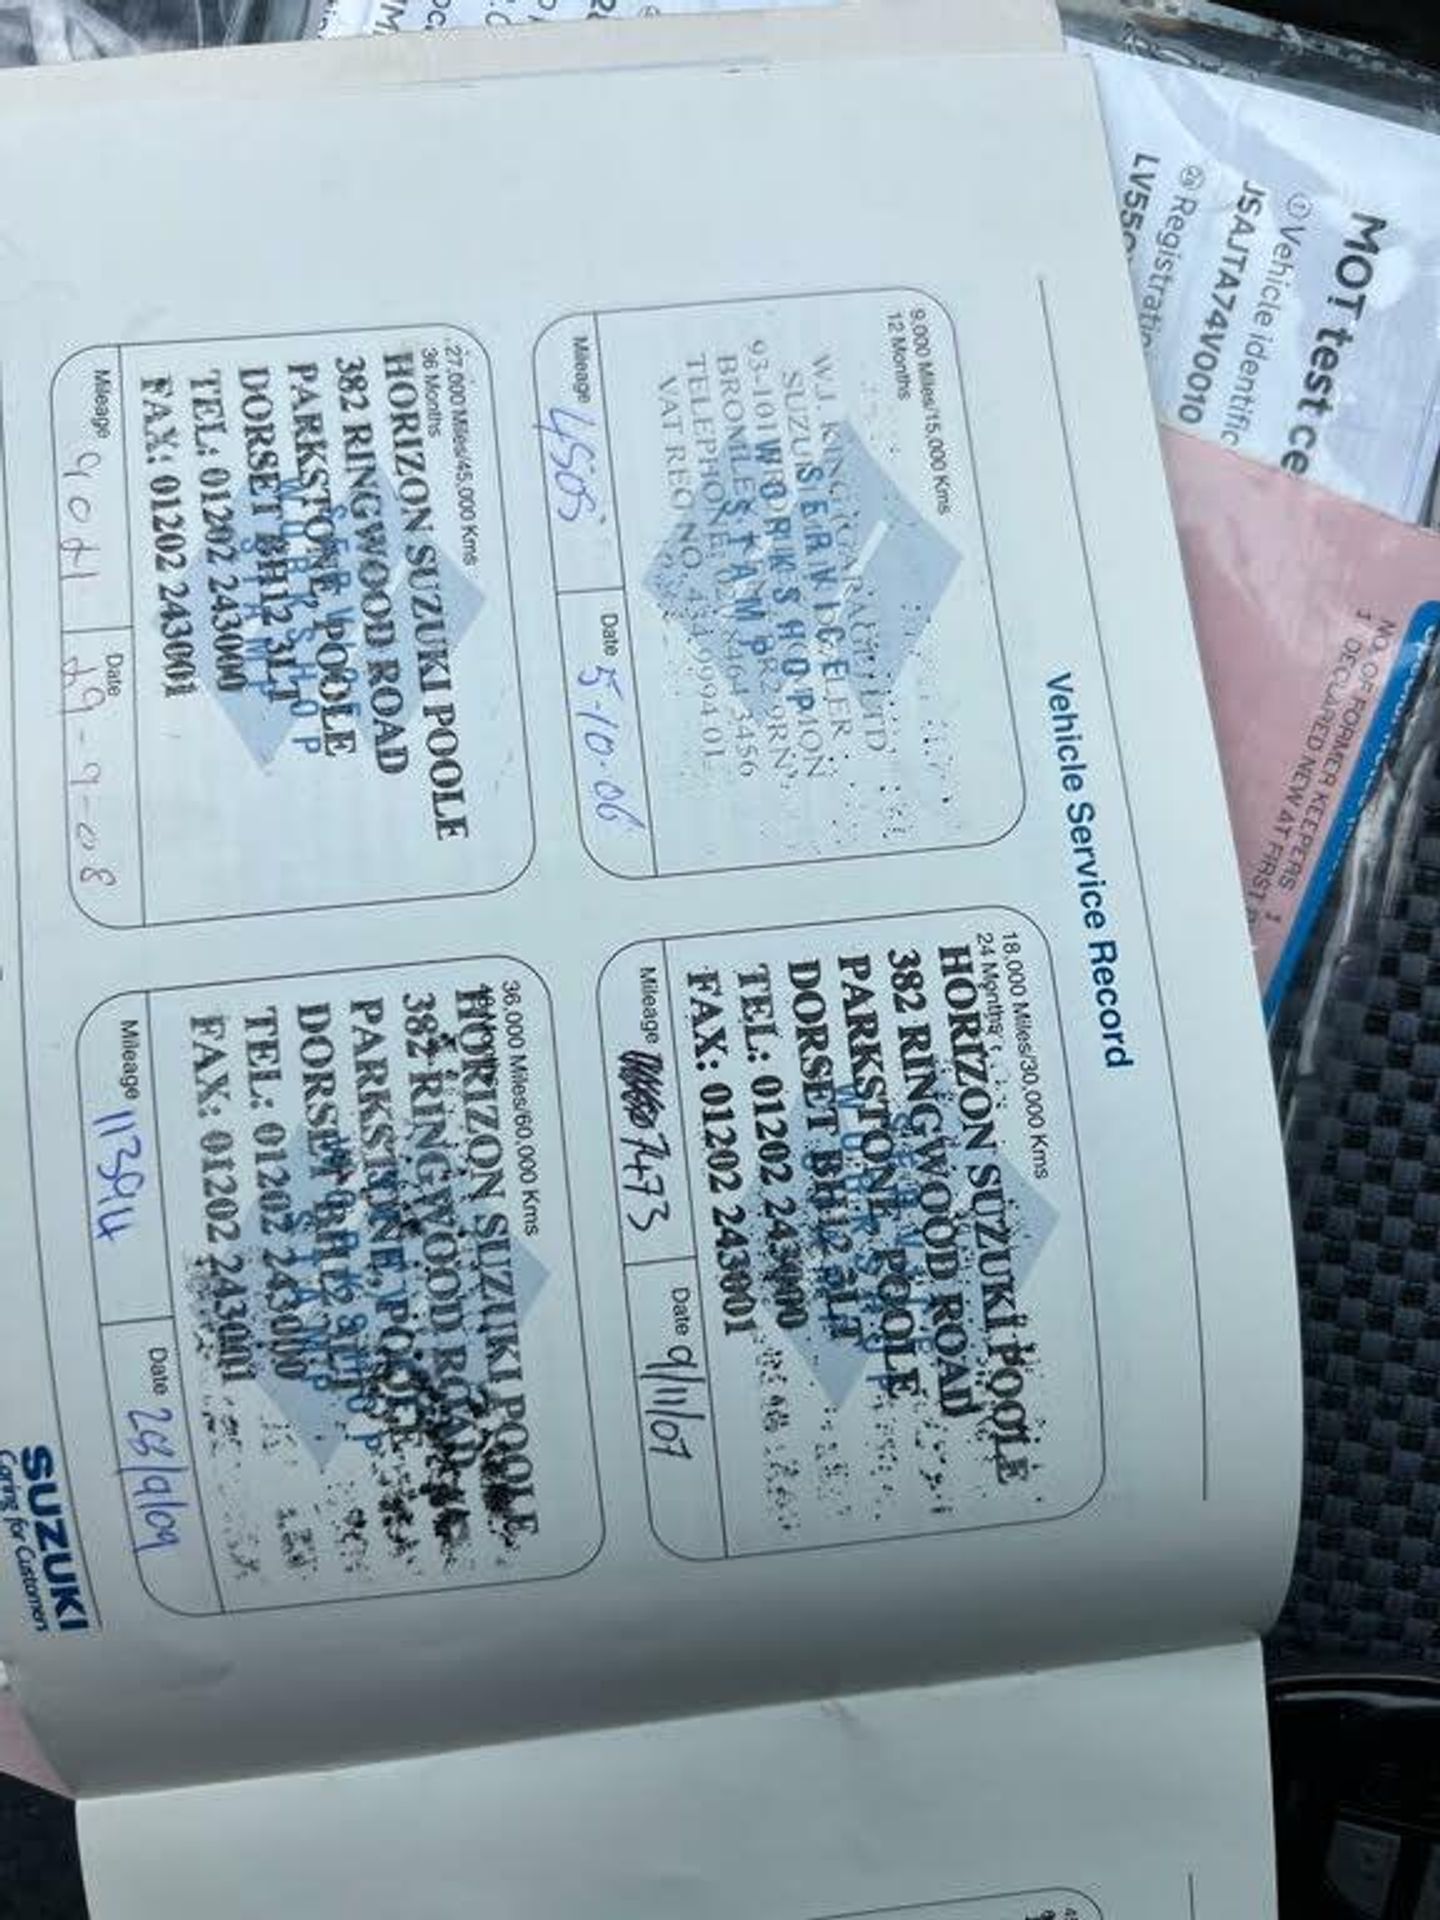 Vehicle Service Record
9,000 Miles/15,000 Kms
12 Months
W.J. KING (GARAGES) LTD
SERVICE
WORKSHOP
STAMP
93-101
TELEPHONE: 020 8464 3456
VAT REG NO.
Mileage 4505 Date 5-10-06
18,000 Miles/30,000 Kms
24 Months
HORIZON SUZUKI POOLE
382 RINGWOOD ROAD
PARKSTONE, POOLE
DORSET BH12 3LT
TEL: 01202 243000
FAX: 01202 243001
SERVICE
WORKSHOP
STAMP
Mileage 7473 Date 9/11/07
27,000 Miles/45,000 Kms
36 Months
HORIZON SUZUKI POOLE
382 RINGWOOD ROAD
PARKSTONE, POOLE
DORSET BH12 3LT
TEL: 01202 243000
FAX: 01202 243001
SERVICE
WORKSHOP
STAMP
Mileage Date 29-9-08
36,000 Miles/60,000 Kms
HORIZON SUZUKI POOLE
382 RINGWOOD ROAD
PARKSTONE, POOLE
DORSET BH12 3LT
TEL: 01202 243000
FAX: 01202 243001
WORKSHOP
STAMP
Mileage 11394 Date 28/9/09
SUZUKI
Caring for Customers
MOT test ce
Vehicle identific
JSAJTA74V0010
Registratio
LV55
NO. OF FORMER KEEPERS 1
1 DECLARED NEW AT FIRST